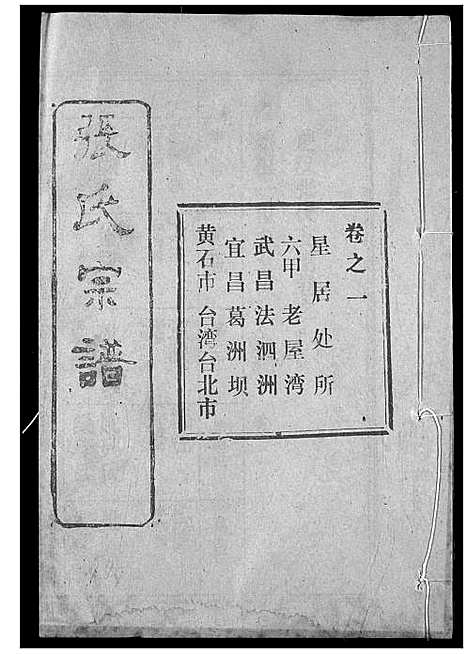 卷之一
星居处所
六甲老屋湾
武昌法泗洲
宜昌葛洲坝
黄石市 台湾台北市
張氏宗譜